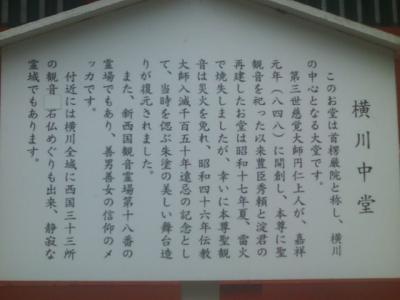 横川中堂
このお堂は首楞厳院と称し、横川
の中心となる大堂です。
第三世慈覚大師円仁上人が、嘉祥
元年（八四八）に開創し、本尊に聖
観音を祀った以来豊臣秀頼と淀君の
再建したお堂は昭和十七年夏、雷火
で焼失しましたが、幸いに本尊聖観
音は災火を免れ、昭和四十六年伝教
大師入滅千百五十年遠忌の記念とし
て、当時を偲ぶ朱塗の美しい舞台造
りが復元されました。
また、新西国観音霊場第十八番の
霊場でもあり、善男善女の信仰のメ
ッカです。
付近には横川全域に西国三十三所
の観音 石仏めぐりも出来、静寂な
霊域でもあります。